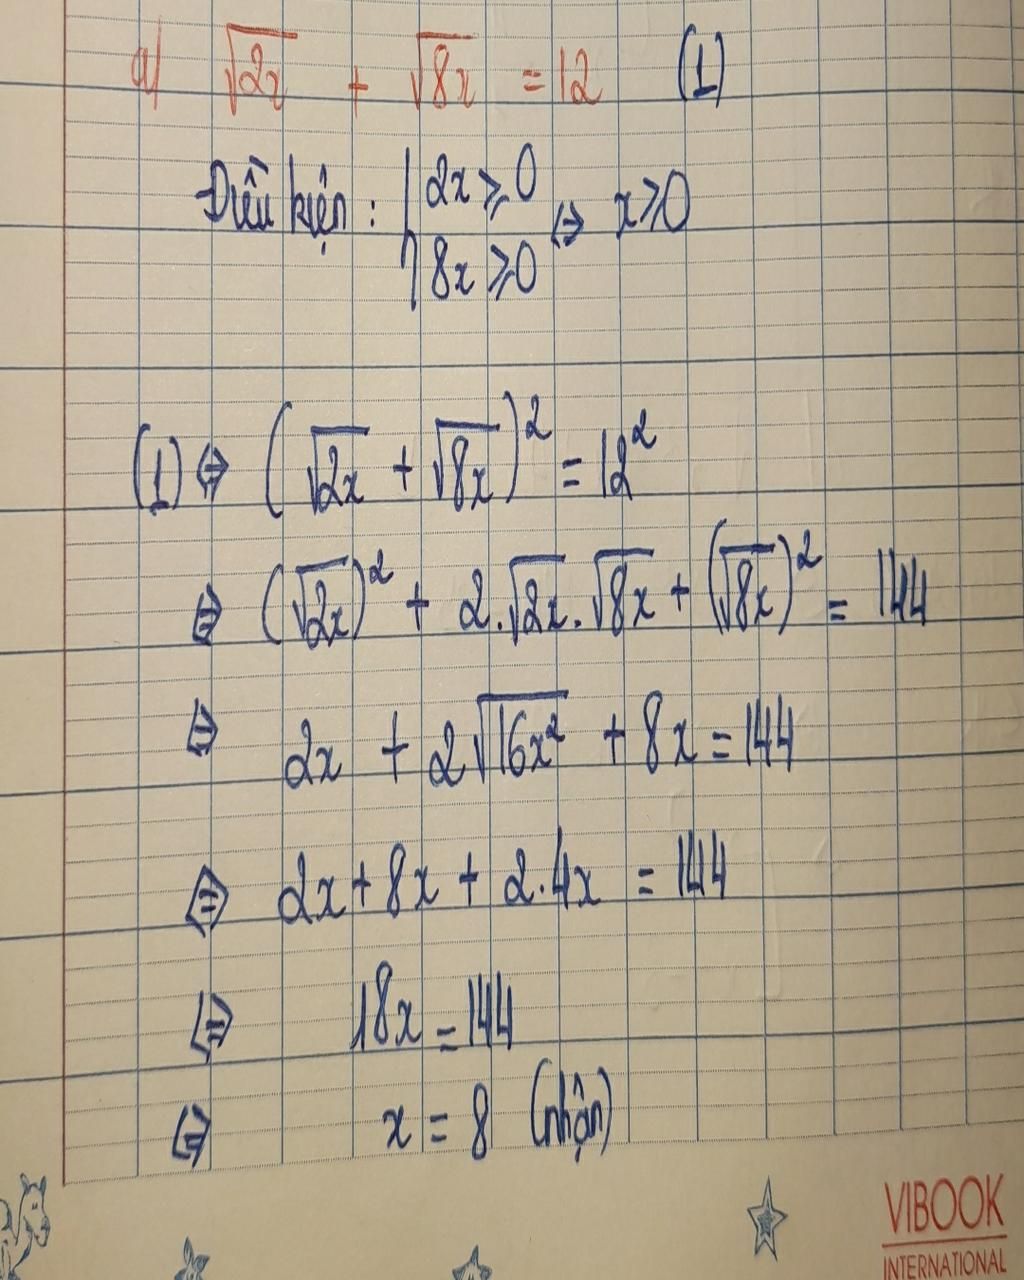 a) √2x + √8x = 12 (1)
Điều kiện: { 2x ≥ 0 ⇔ x ≥ 0
8x ≥ 0
(1) ⇔ (√2x + √8x)² = 12²
⇔ (√2x)² + 2.√2x.√8x + (√8x)² = 144
⇔ 2x + 2√16x² + 8x = 144
⇔ 2x + 8x + 2.4x = 144
⇔ 18x = 144
⇔ x = 8 (nhận)
VIBOOK
INTERNATIONAL